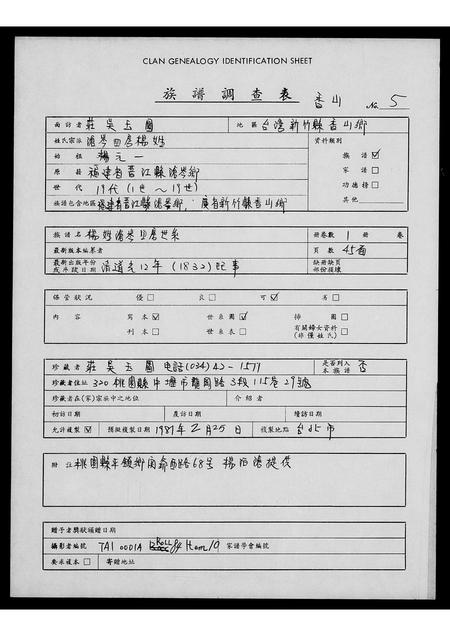 CLAN GENEALOGY IDENTIFICATION SHEET
族譜調查表 香山 No. 5
面訪者 莊吳玉圖 地區 台灣新竹縣香山鄉
姓氏宗派 滄岑四房楊姓 資料類別
始祖 楊元一 族譜 ☑
原縣 福建省晉江縣滄岑鄉 家譜 □
世代 19代 (1世~19世) 功德榜 □
族譜包含地區 福建省晉江縣滄岑鄉, 台灣新竹縣香山鄉 其他
族譜名 楊姓滄岑四房世系 冊卷數 1 冊 卷
最新版本編纂者 頁數 45面
最新出版年份或斗跋日期 清道光12年 (1832) 記事 缺冊缺頁部份損壞
保管狀況 優 □ 良 □ 可 ☑ 劣 □
內容 寫本 ☑ 世系圖 ☑ 排圖 □
刊本 □ 世系表 □ 有關婦女資料 (非僅姓氏) □
珍藏者 莊吳玉圖 電話(034)42-1577 是否列入本族譜 否
珍藏者住址 320 桃園縣中壢市龍岡路3段115巷29號
珍藏者在(家)宗族中之地位 介紹者
初訪日期 度訪日期 續訪日期
允許複製 ☑ 擬複製日期 1987年2月25日 複製地點 台北市
附註 桃園縣平鎮鄉 路68號 楊 提供
贈予者獎狀頒贈日期
攝影者編號 TAI 0001A ROLL 84 Item 19 家譜學會編號
要求複本 □ 寄贈地址